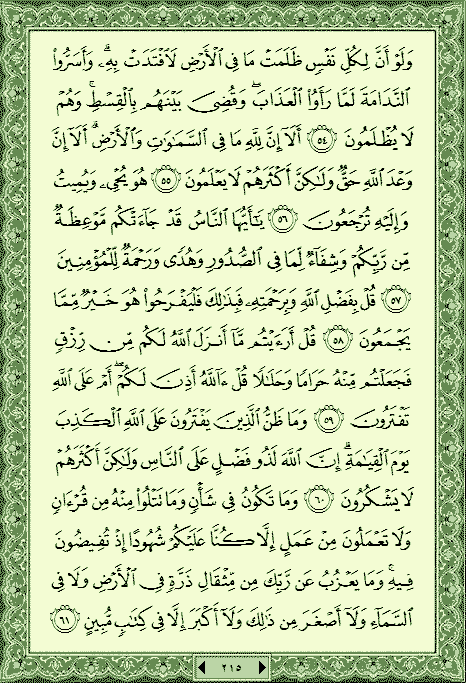 وَلَوْ أَنَّ لِكُلِّ نَفْسٍ ظَلَمَتْ مَا فِى ٱلْأَرْضِ لَٱفْتَدَتْ بِهِۦ ۗ وَأَسَرُّوا۟
ٱلنَّدَامَةَ لَمَّا رَأَوُا۟ ٱلْعَذَابَ ۖ وَقُضِىَ بَيْنَهُم بِٱلْقِسْطِ ۚ وَهُمْ
لَا يُظْلَمُونَ ٥٤ أَلَآ إِنَّ لِلَّهِ مَا فِى ٱلسَّمَـٰوَٰتِ وَٱلْأَرْضِ ۗ أَلَآ إِنَّ
وَعْدَ ٱللَّهِ حَقٌّ وَلَـٰكِنَّ أَكْثَرَهُمْ لَا يَعْلَمُونَ ٥٥ هُوَ يُحْىِۦ وَيُمِيتُ
وَإِلَيْهِ تُرْجَعُونَ ٥٦ يَـٰٓأَيُّهَا ٱلنَّاسُ قَدْ جَآءَتْكُم مَّوْعِظَةٌ
مِّن رَّبِّكُمْ وَشِفَآءٌ لِّمَا فِى ٱلصُّدُورِ وَهُدًى وَرَحْمَةٌ لِّلْمُؤْمِنِينَ
٥٧ قُلْ بِفَضْلِ ٱللَّهِ وَبِرَحْمَتِهِۦ فَبِذَٰلِكَ فَلْيَفْرَحُوا۟ هُوَ خَيْرٌ مِّمَّا
يَجْمَعُونَ ٥٨ قُلْ أَرَءَيْتُم مَّآ أَنزَلَ ٱللَّهُ لَكُم مِّن رِّزْقٍ
فَجَعَلْتُم مِّنْهُ حَرَامًا وَحَلَـٰلًا قُلْ ءَآللَّهُ أَذِنَ لَكُمْ ۖ أَمْ عَلَى ٱللَّهِ
تَفْتَرُونَ ٥٩ وَمَا ظَنُّ ٱلَّذِينَ يَفْتَرُونَ عَلَى ٱللَّهِ ٱلْكَذِبَ
يَوْمَ ٱلْقِيَـٰمَةِ ۗ إِنَّ ٱللَّهَ لَذُو فَضْلٍ عَلَى ٱلنَّاسِ وَلَـٰكِنَّ أَكْثَرَهُمْ
لَا يَشْكُرُونَ ٦٠ وَمَا تَكُونُ فِى شَأْنٍ وَمَا تَتْلُوا۟ مِنْهُ مِن قُرْءَانٍ
وَلَا تَعْمَلُونَ مِنْ عَمَلٍ إِلَّا كُنَّا عَلَيْكُمْ شُهُودًا إِذْ تُفِيضُونَ
فِيهِ ۚ وَمَا يَعْزُبُ عَن رَّبِّكَ مِن مِّثْقَالِ ذَرَّةٍ فِى ٱلْأَرْضِ وَلَا فِى
ٱلسَّمَآءِ وَلَآ أَصْغَرَ مِن ذَٰلِكَ وَلَآ أَكْبَرَ إِلَّا فِى كِتَـٰبٍ مُّبِينٍ ٦١
٢١٥